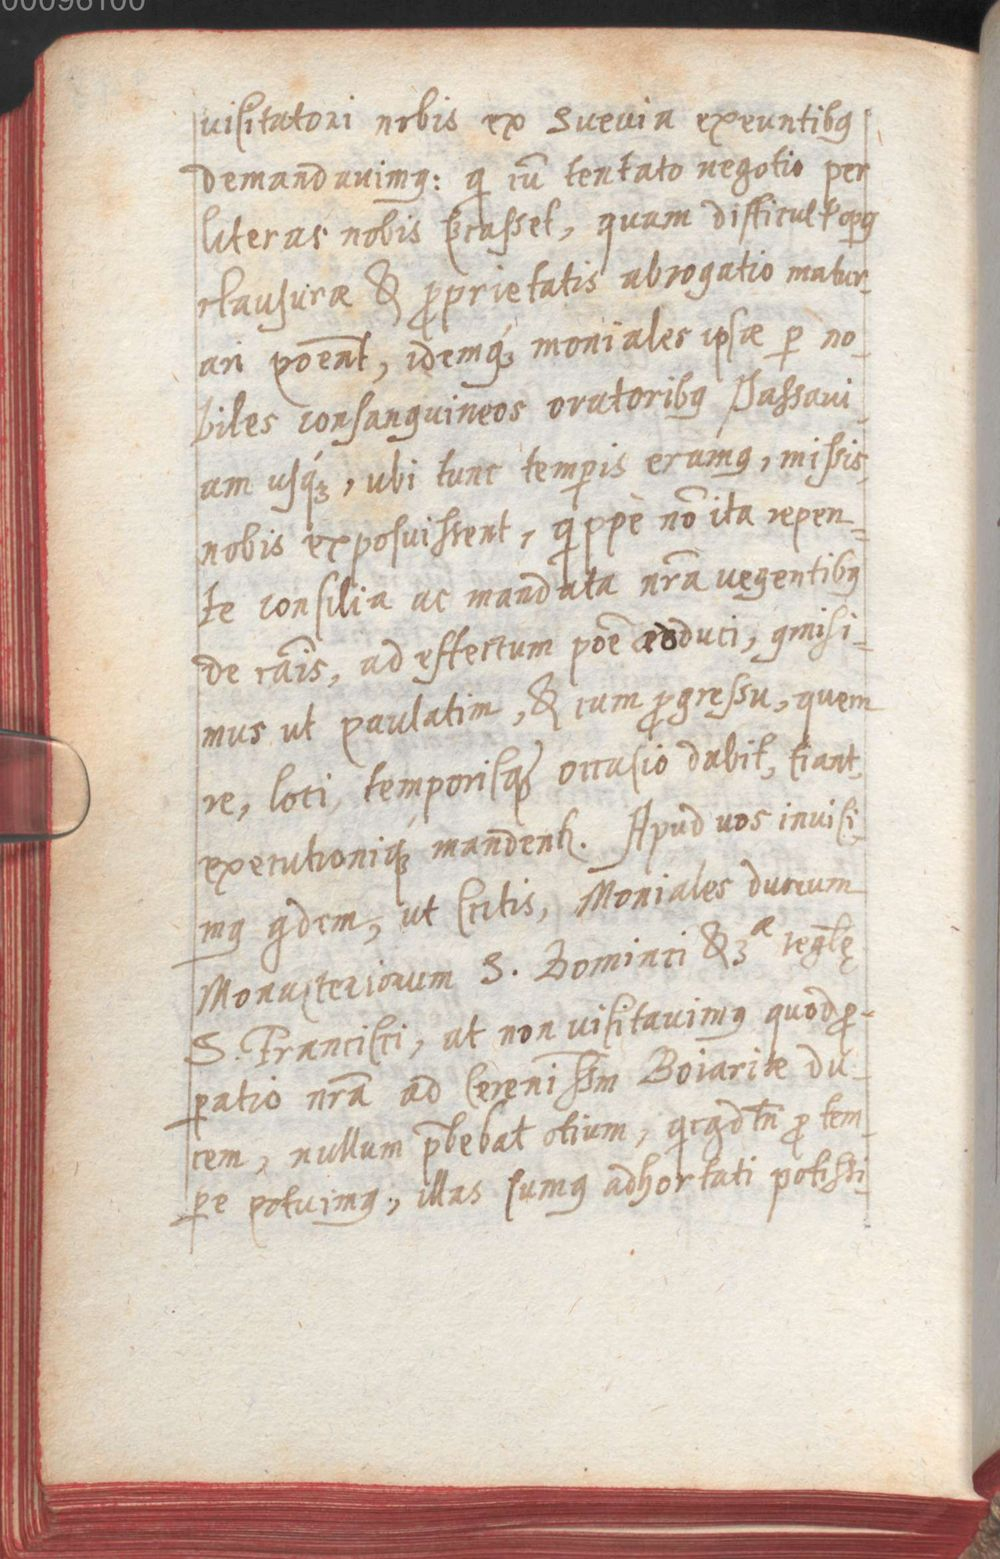 00096100
uisitatori nobis ex Sueuia exeuntibꝯ
demandauimꝯ: qͥ cū tentato negotio per
literas nobis sc̄asset, quam difficult
clausuræ & ꝓprietatis abrogatio matur-
ari poēnt, idemqꝫ moniales ipsæ ꝑ no-
biles consanguineos oratoribꝯ Passaui
am usqꝫ, ubi tunc temꝑis eramꝯ, missis,
nobis exposuissent, qͥppè nō ita repen-
te consilia ac mandata nr̄a uegentibꝯ
de cāis, ad effectum poē adduci,
mus ut paulatim, & cum ꝓgressu, quem
re, loci, temporisqꝫ occasio dabit, fiant,
executioniqꝫ mandentr. Apud uos inuisi-
mꝯ qͥdem, ut scitis, Moniales duorum
Monasteriorum S. Dominici & 3ᵃᵉ regl̄ę
S. Francisci, at non uisitauimꝯ quod ꝓ-
ꝑatio nr̄a ad Serenissm̄ Boiariæ du-
cem, nullum p̄bebat otium, tn̄ ꝓ tem-
ꝑe potuimꝯ, illas sumꝯ adhortati potissi-